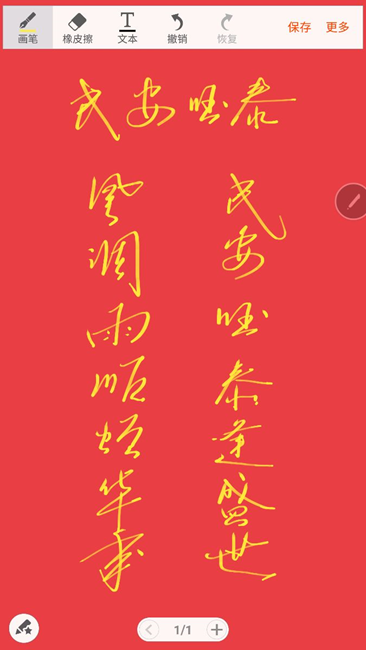 画笔
橡皮擦
文本
撤销
恢复
保存
更多
民安国泰
民安国泰逢盛世
风调雨顺颂华年
1/1